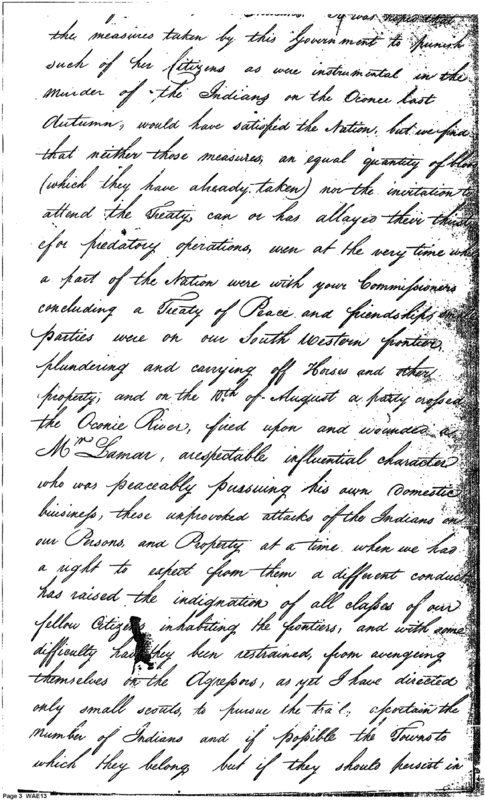 It was hoped that
the measures taken by this Government to punish
such of her Citizens as were instrumental in the
murder of the Indians on the Oconee last
Autumn, would have satisfied the Nation, but we find
that neither those measures, an equal quantity of bloo
(which they have already taken) nor the invitation to
attend the Treaty, can or has allayed their thirst
for predatory operations, even at the very time whe
a part of the Nation were with your Commissioners
concluding a Treaty of Peace and friendship, small
parties were on our South Western frontier,
plundering and carrying off Horses and other
property, and on the 10th of August a party crossed
the Oconie River, fired upon and wounded a
Mr Lamar, a respectable influential character
who was peaceably pursuing his own Domestic
business, these unprovoked attacks of the Indians on
our Persons, and Property at a time when we had
a right to expect from them a different conduct
has raised the indignation of all classes of our
fellow Citizens inhabiting the frontiers, and with some
difficulty have they been restrained, from avengeing
themselves on the Agressors, as yet I have directed
only small scouts, to pursue the trail, ascertain the
number of Indians and if possible the Towns to
which they belong but if they should persist in
Page 3 WAE13